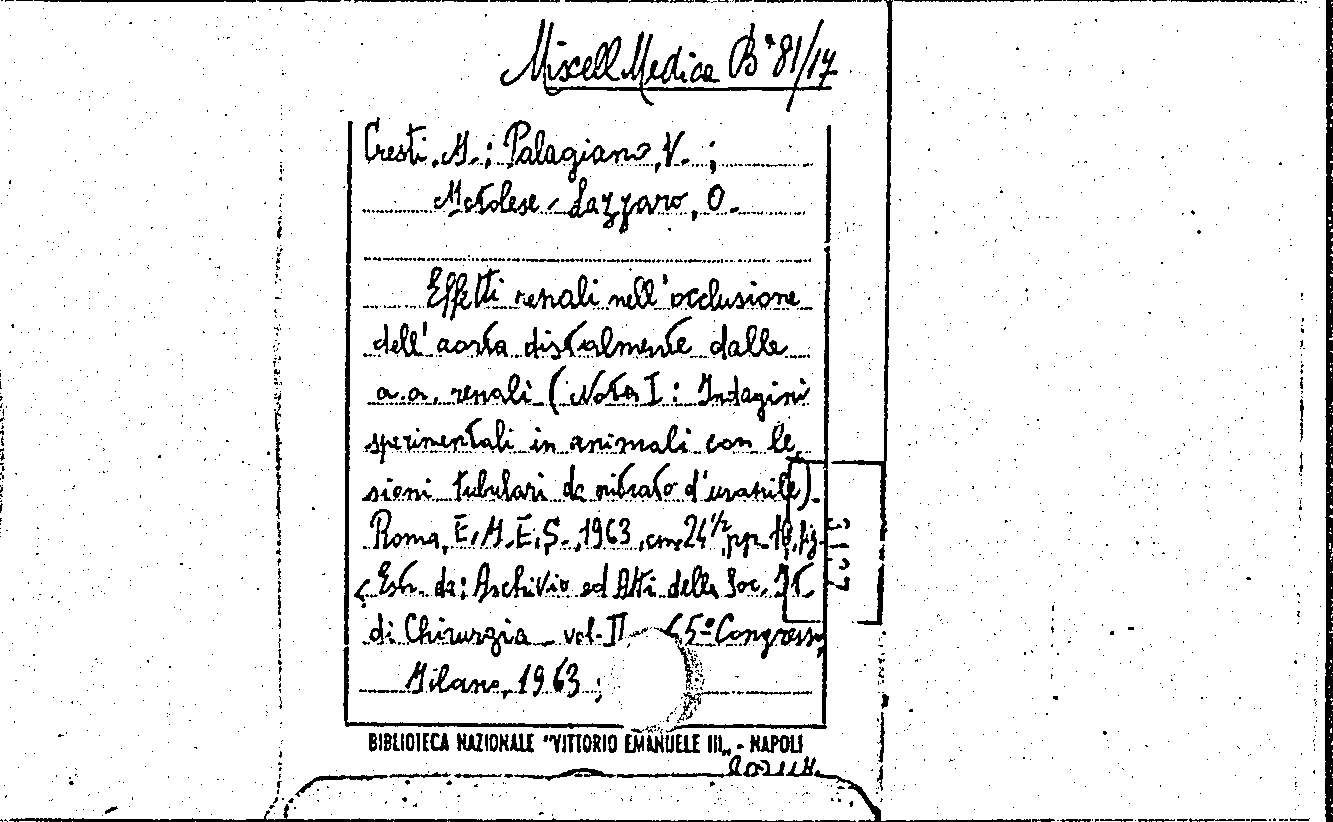 Miscell Medica B° 81/17
Cresti, M.; Palagiano, V. ;
Metolese - Lazzaro, O.
Effetti renali nell'occlusione
dell'aorta distalmente dalle
a.a. renali (Nota I : Indagini
sperimentali in animali con le
sioni tubulari da nitrato d'uranile).
Roma, E.M.E.S., 1963, cm. 24 1/2, pp. 10, fig.
(Estr. da: Archivio ed Atti della Soc. It.
di Chirurgia - vol. II 65° Congresso,
Milano, 1963 ;
BIBLIOTECA NAZIONALE "VITTORIO EMANUELE III„ - NAPOLI